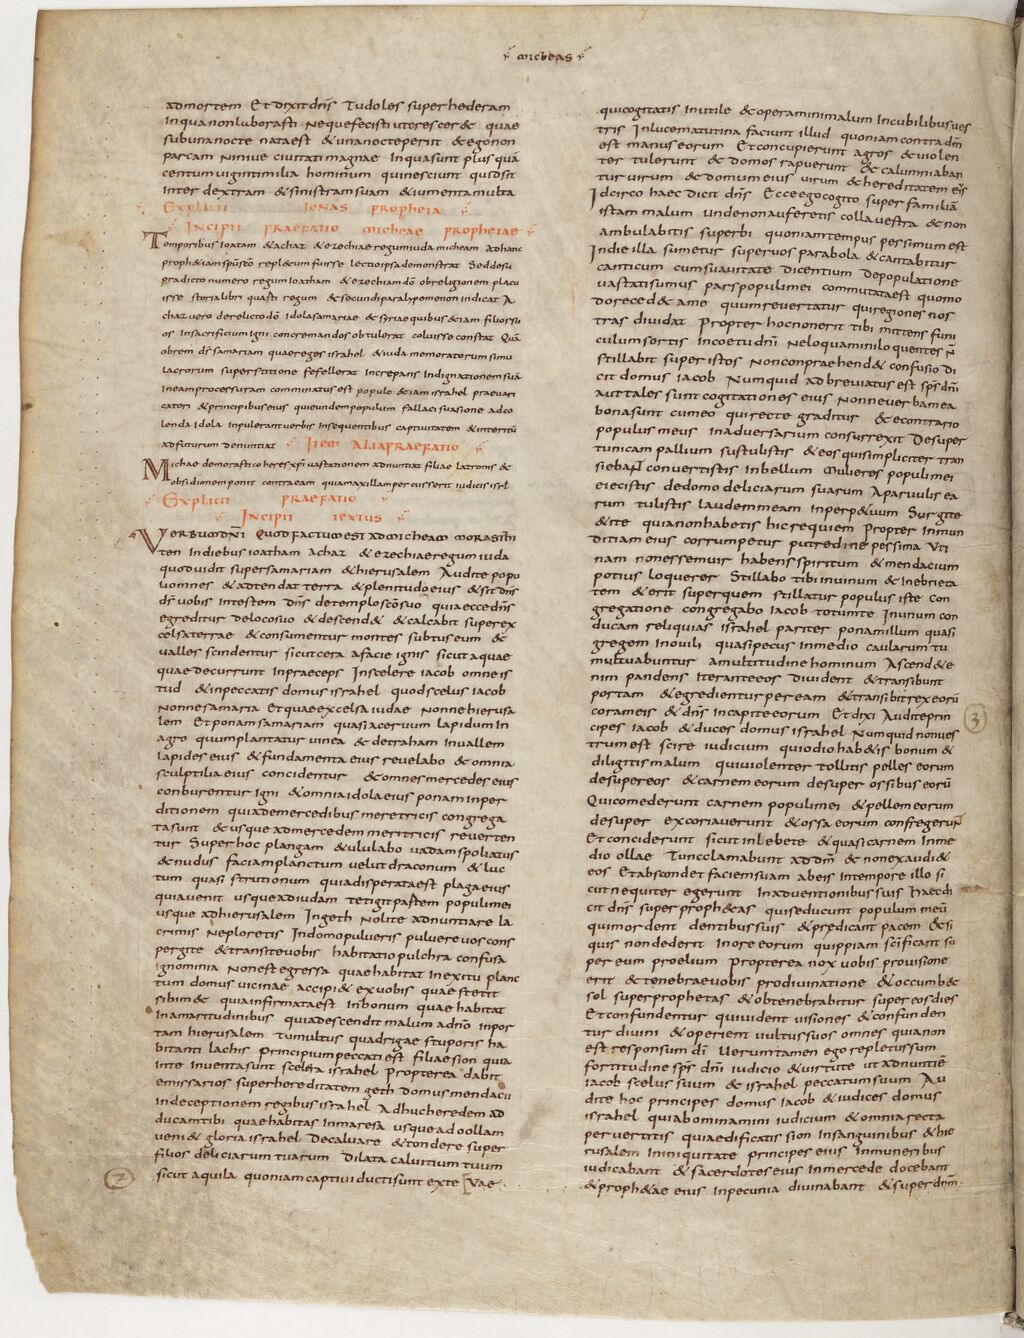 micheas
ad mortem Et dixit dns Tu doles super hederam
in qua non laborasti Neque fecisti ut cresceret quae
sub una nocte nata est & una nocte periit & ego non
parcam Niniue ciuitati magnae In qua sunt plus quã
centum uiginti milia hominum qui nesciunt quid sit
inter dextram & sinistram suam & iumenta multa
Explicit Ionas propheta
Incipit praefatio micheae prophetae
Temporibus ioatam & achaz & ezechiae regum iuda micheam ad hanc
proph&iam spũ sčo repl&um fuisse lectio ipsa demonstrat Sed de su
pradicto numero regum ioatham & ezechiam dõ ob religionem placu
isse storia libri quasti regum & secundi paralypomenon indicat A
chaz uero derelicto dõ idola samariae & syriae quibus &iam filios su
os in sacrificium igni concremandos obtulerat coluisse constat Quã
obrem dš samariam quae reges israhel & iuda memoratorum simu
lacrorum superstitione fefellerat increpans indignationem suã
in eam processuram comminatus est populo &iam israhel praeuari
catori & principibus eius qui eundem populum fallaci suasione ad co
lenda idola inpulerant uerbis insequentibus captiuitatem & interitũ
ad futurum denuntiat Item alia praefatio
Michae de morasti coheres xpi uastationem adnuntiat filiae latronis &
obsidionem ponit contra eam quia maxillam percusserit iudicis isrl
Explicit praefatio
Incipit textus
Verbum dñi quod factum est ad micheam morasthi
ten In diebus ioatham achaz & ezechiae regum iuda
quod uidit super samariam & hierusalem Audite popu
li omnes & adtendat terra & plenitudo eius & sit dñs
dš uobis in testem dñs de templo sčo suo quia ecce dñs
egreditur de loco suo & descend& & calcabit super ex
celsa terrae & consumentur montes subtus eum &
ualles scindentur sicut cera a facie ignis sicut aquae
quae decurrunt in praeceps In scelere iacob omne is
tud & in peccatis domus israhel quod scelus iacob
Nonne samaria Et quae excelsa iudae Nonne hierusa
lem Et ponam samariam quasi aceruum lapidum in
agro quum plantatur uinea & detraham in uallem
lapides eius & fundamenta eius reuelabo & omnia
sculptilia eius concidentur & omnes mercedes eius
conburentur igni & omnia idola eius ponam in per
ditionem quia de mercedibus meretricis congrega
ta sunt & usque ad mercedem meretricis reuerten
tur Super hoc plangam & ululabo uadam spoliatus
& nudus faciam planctum uelut draconum & luc
tum quasi strutionum quia disperata est plaga eius
quia uenit usque ad iudam tetigit portam populi mei
usque ad hierusalem In geth Nolite adnuntiare la
crimis Ne ploretis In domo pulueris puluere uos cons
pergite & transite uobis habitatio pulchra confusa
ignominia Non est egressa quae habitat in exitu planc
tum domus uicinae accipi& ex uobis quae stetit
sibim& quia infirmata est in bonum quae habitat
in amaritudinibus quia descendit malum a dño in por
tam hierusalem Tumultus quadrigae stuporis ha
bitanti lachis Principium peccati est filiae sion quia
in te inuenta sunt scelera israhel Propterea dabit
emissarios super hereditatem geth domus mendacii
in deceptionem regibus israhel Adhuc heredem ad
ducam tibi quae habitas in maresa usque ad odollam
ueni& gloria israhel Decaluare & tondere super
filios deliciarum tuarum Dilata caluitium tuum
sicut aquila quoniam captiui ducti sunt ex te Vae
qui cogitatis inutile & operamini malum In cubilibus ues
tris In luce matutina faciunt illud quoniam contra dm̃
est manus eorum Et concupierunt agros & uiolen
ter tulerunt & domos rapuerunt & calumniaban
tur uirum & domum eius uirum & hereditatem eius
Idcirco haec dicit dñs Ecce ego cogito super familiã
istam malum unde non auferetis colla uestra & non
ambulabitis superbi quoniam tempus pessimum est
In die illa sumetur super uos parabola & cantabitur
canticum cum suauitate dicentium Depopulatione
uastati sumus pars populi mei commutata est quomo
do reced& a me quum reuertatur qui regiones nos
tras diuidat Propter hoc non erit tibi mittens funi
culum sortis In coetu dñi Ne loquamini loquentes ñ
stillabit super istos Non conpraehend& confusio di
cit domus iacob Numquid adbreuiatus est sps dñi
aut tales sunt cogitationes eius Nonne uerba mea
bona sunt cum eo qui recte graditur & e contrario
populus meus in aduersarium consurrexit Desuper
tunicam pallium sustulistis & eos qui simpliciter tran
siebant conuertistis in bellum Mulieres populi mei
eiecistis de domo deliciarum suarum A paruulis ea
rum tulistis laudem meam in perp&uum Surgite
& ite quia non habetis hic requiem Propter inmun
ditiam eius corrumpetur putredine pessima Uti
nam non essem uir habens spiritum & mendacium
potius loquerer Stillabo tibi in uinum & in ebrieta
tem & erit super quem stillatur populus iste Con
gregatione congregabo iacob totum te In unum con
ducam reliquias israhel pariter ponam illum quasi
gregem in ouili quasi pecus in medio caularum tu
multuabuntur a multitudine hominum Ascend& e
nim pandens iter ante eos Diuident & transibunt
portam & egredientur per eam & transibit rex eorũ
coram eis & dñs in capite eorum Et dixi Audite prin
cipes iacob & duces domus israhel Numquid non ues
trum est scire iudicium qui odio hab&is bonum &
diligitis malum qui uiolenter tollitis pelles eorum
desuper eos & carnem eorum desuper ossibus eorũ
Qui comederunt carnem populi mei & pellem eorum
desuper excoriauerunt & ossa eorum confregerunt
Et conciderunt sicut in lebete & quasi carnem in me
dio ollae Tunc clamabunt ad dm̃ & non exaudi&
eos Et abscondet faciem suam ab eis in tempore illo si
cut nequiter egerunt in adinuentionibus suis Haec di
cit dñs super proph&as qui seducunt populum meũ
qui mordent dentibus suis & prędicant pacem Et si
quis non dederit in ore eorum quippiam scificant su
per eum proelium Propterea nox uobis pro uisione
erit & tenebrae uobis pro diuinatione & occumb&
sol super prophetas & obtenebrabitur super eos dies
Et confundentur qui uident uisiones & confunden
tur diuini & operient uultus suos omnes quia non
est responsum di Uerumtamen ego repletus sum
fortitudine sps dñi iudicio & uirtute ut adnuntiẽ
iacob scelus suum & israhel peccatum suum Au
dite hoc principes domus iacob & iudices domus
israhel qui abominamini iudicium & omnia recta
peruertitis qui aedificatis sion in sanguinibus & hie
rusalem in iniquitate principes eius in muneribus
iudicabant & sacerdotes eius in mercede docebant
& proph&ae eius in pecunia diuinabant & super dnm
2
3